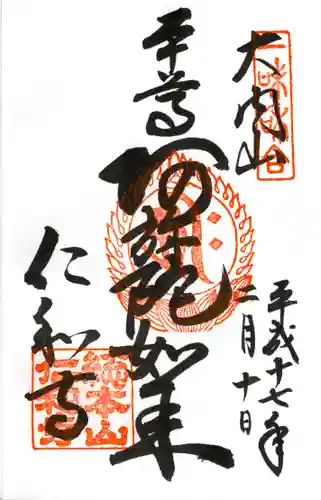 大内山
本尊
阿弥陀如来
仁和寺
平成十七年
二月十日
総本山
仁和寺